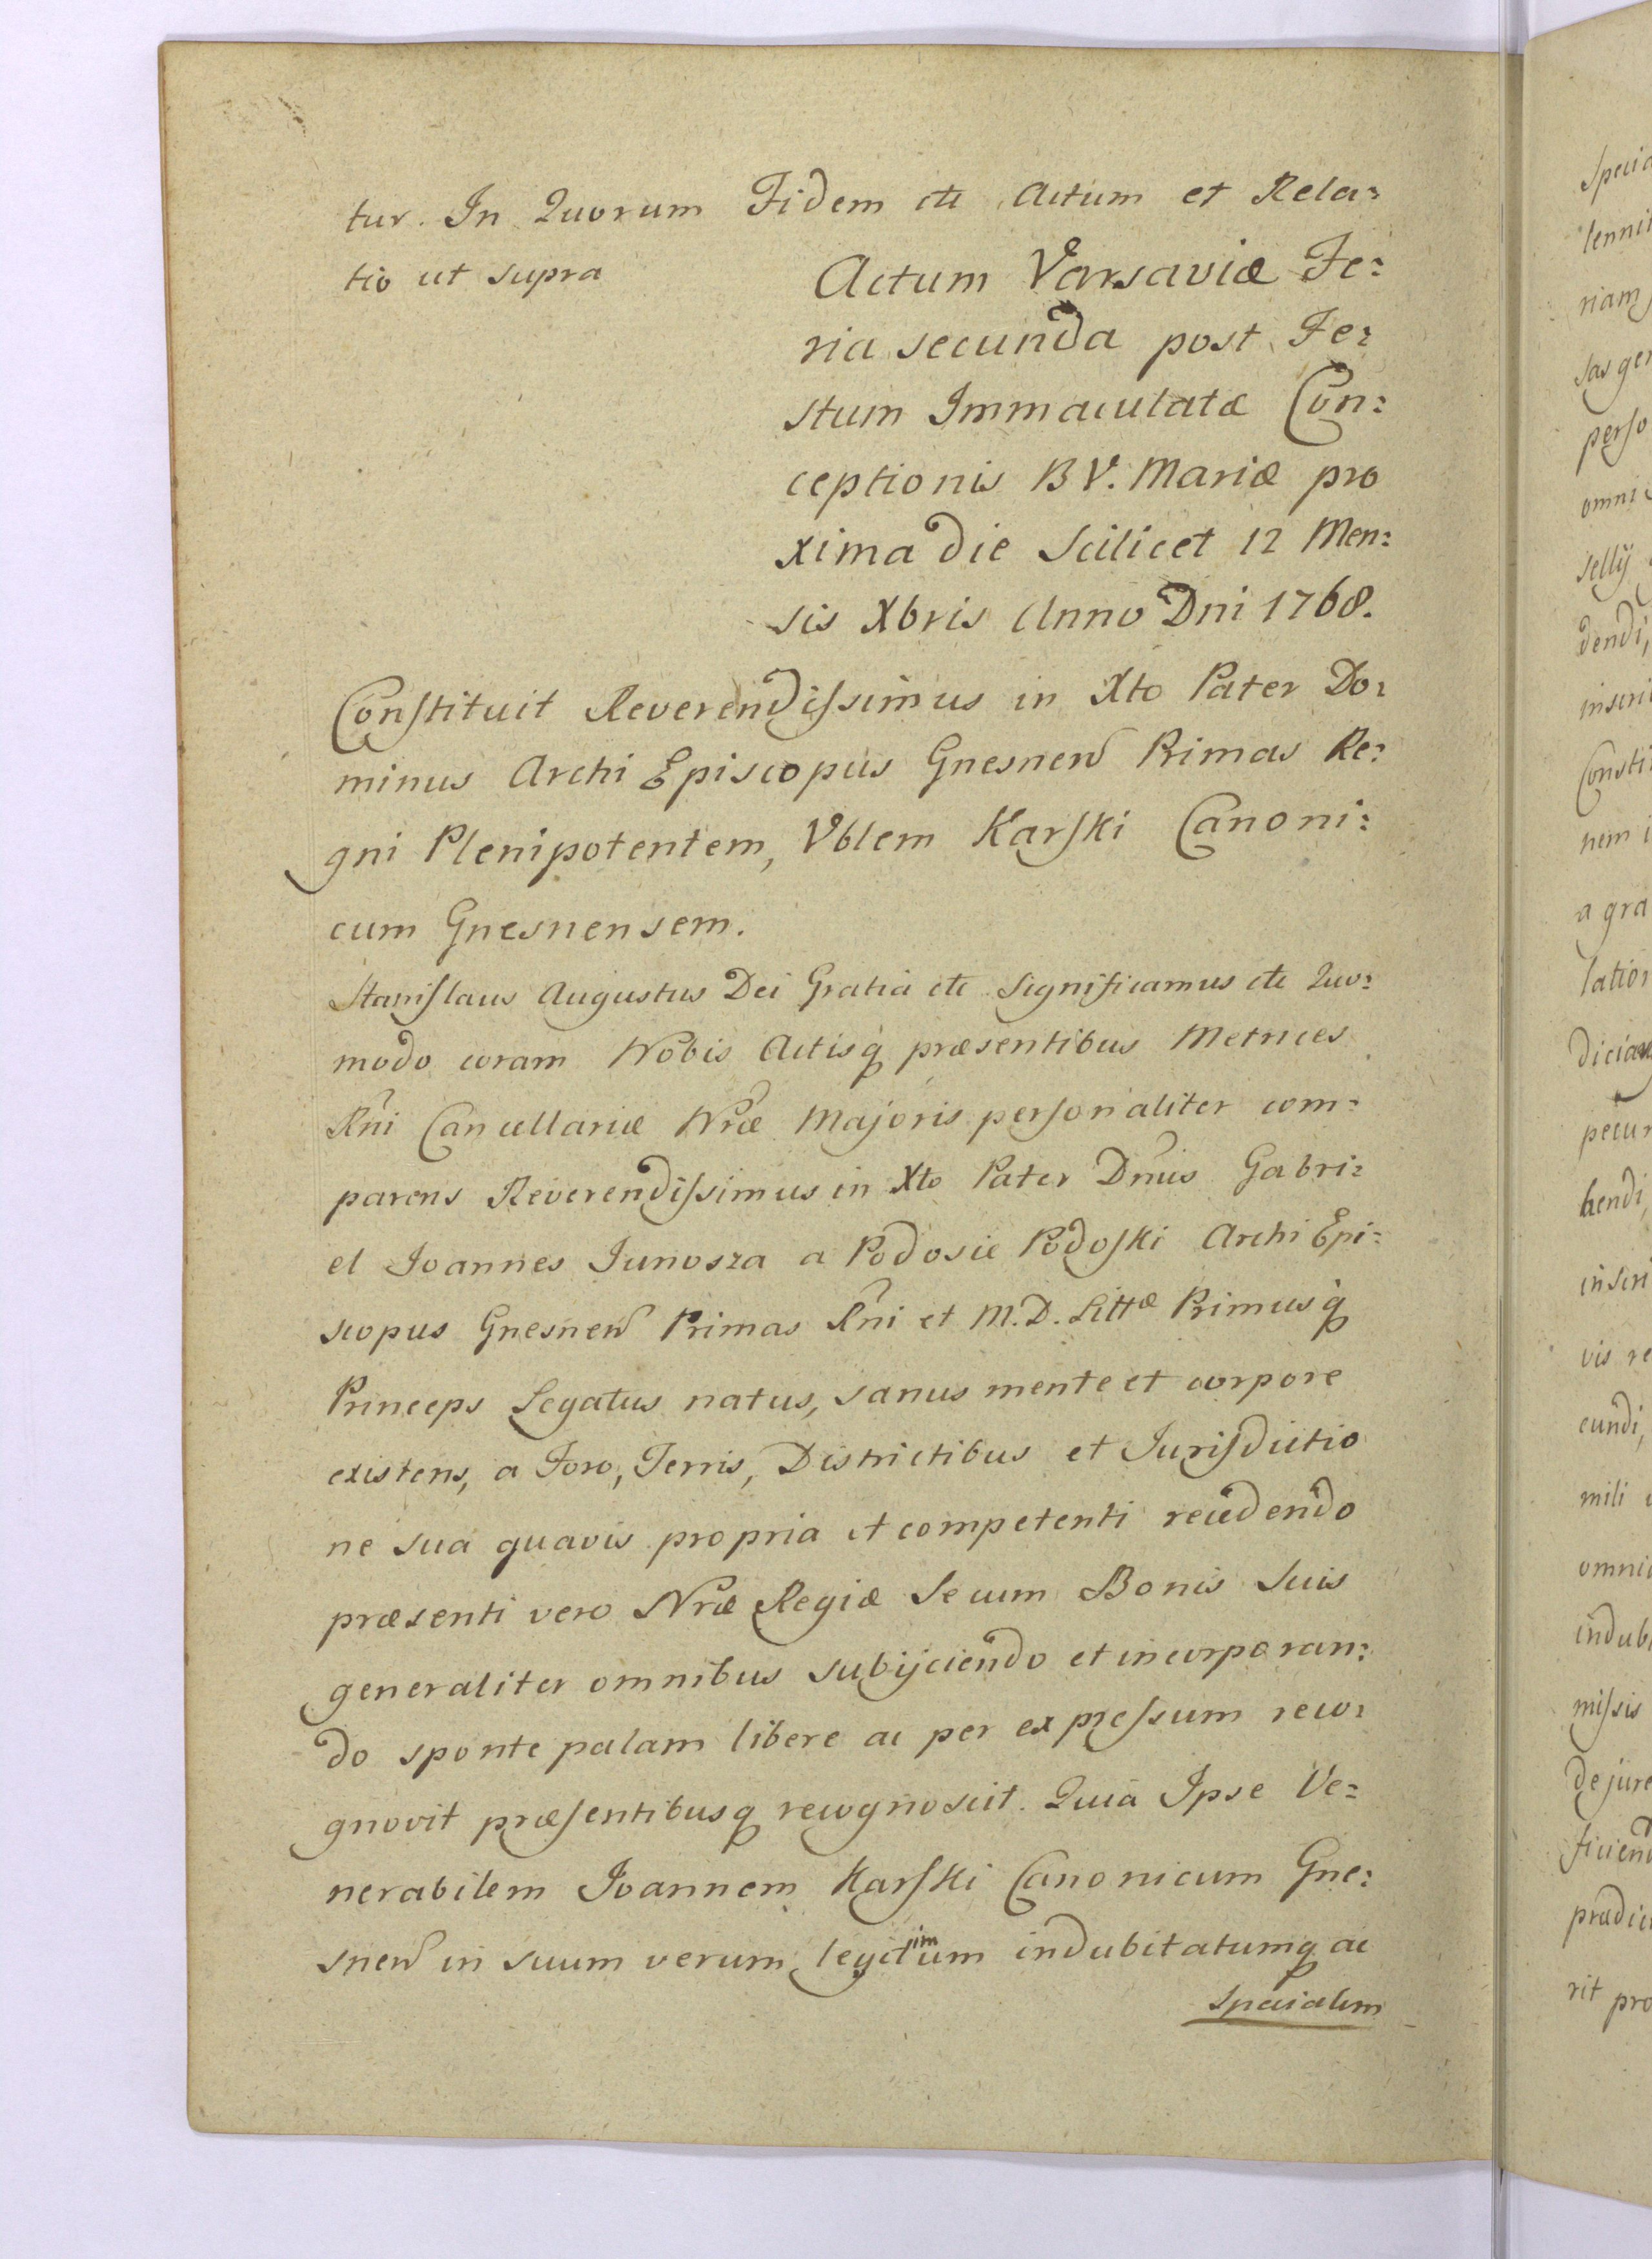 tur. In Quorum Fidem etc Actum et Rela:
tio ut supra
Actum Varsaviæ Fe:
ria secunda post Fe:
stum Immaculatæ Con:
ceptionis B V. Mariæ pro
xima die Scilicet 12 Men:
sis Xbris Anno Dni 1768.
Constituit Reverendissimus in Xto Pater Do:
minus Archi Episcopus Gnesnen Primas Re:
gni Plenipotentem, Vblem Karski Canoni:
cum Gnesnensem.
Stanislaus Augustus Dei Gratia etc Significamus etc Quo:
modo coram Nobis Actisq præsentibus Metrices
Rni Cancellariæ Nræ Majoris personaliter com:
parens Reverendissimus in Xto Pater Dnus Gabri:
el Joannes Junosza a Podosie Podoski Archi Epi:
scopus Gnesnen Primas Rni et M. D. Littæ Primusq
Princeps Legatus natus, sanus mente et corpore
existens, a Foro, Terris, Districtibus et Jurisdictio
ne sua quavis propria et competenti recedendo
præsenti vero Nræ Regiæ Se cum Bonis Suis
generaliter omnibus subijciendo et incorporan:
do sponte palam libere ac per expressum reco:
gnovit præsentibusq recognoscit. Quia Ipse Ve:
nerabilem Joannem Karski Canonicum Gne:
snen in suum verum, legitimum indubitatumq ac
Specialem